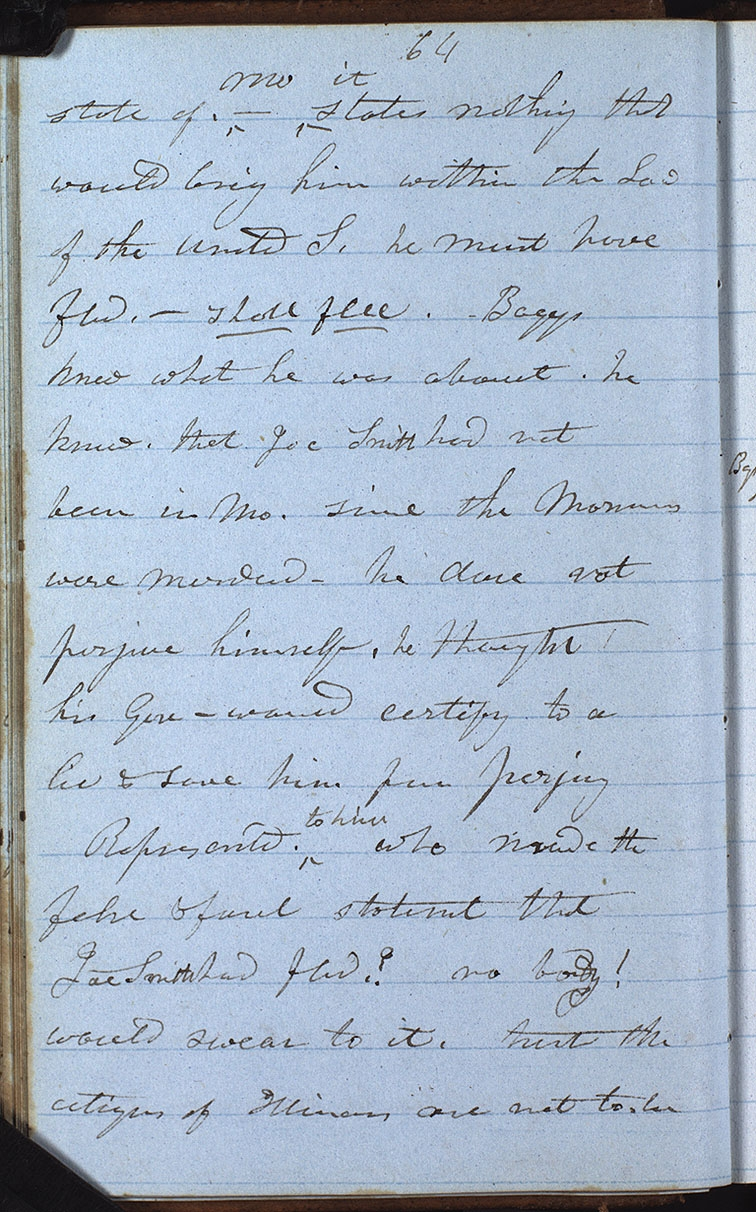 64
mo it
state of. — states nothing that
would bring him within the Law
of the United S. he must have
fled. — shall flee. - Boggs
knew what he was about. he
knew. that Joe Smith had not
been in Mo. since the Mormons
were murderd - he dare not
perjure himself, he thought
his Gove - would certify to a
lie & save him from perjury
to him
Represented. who made the
false & foul statement that
Joe Smith had fled.? no body!
would swear to it. the
citizens of Illinois are not to be